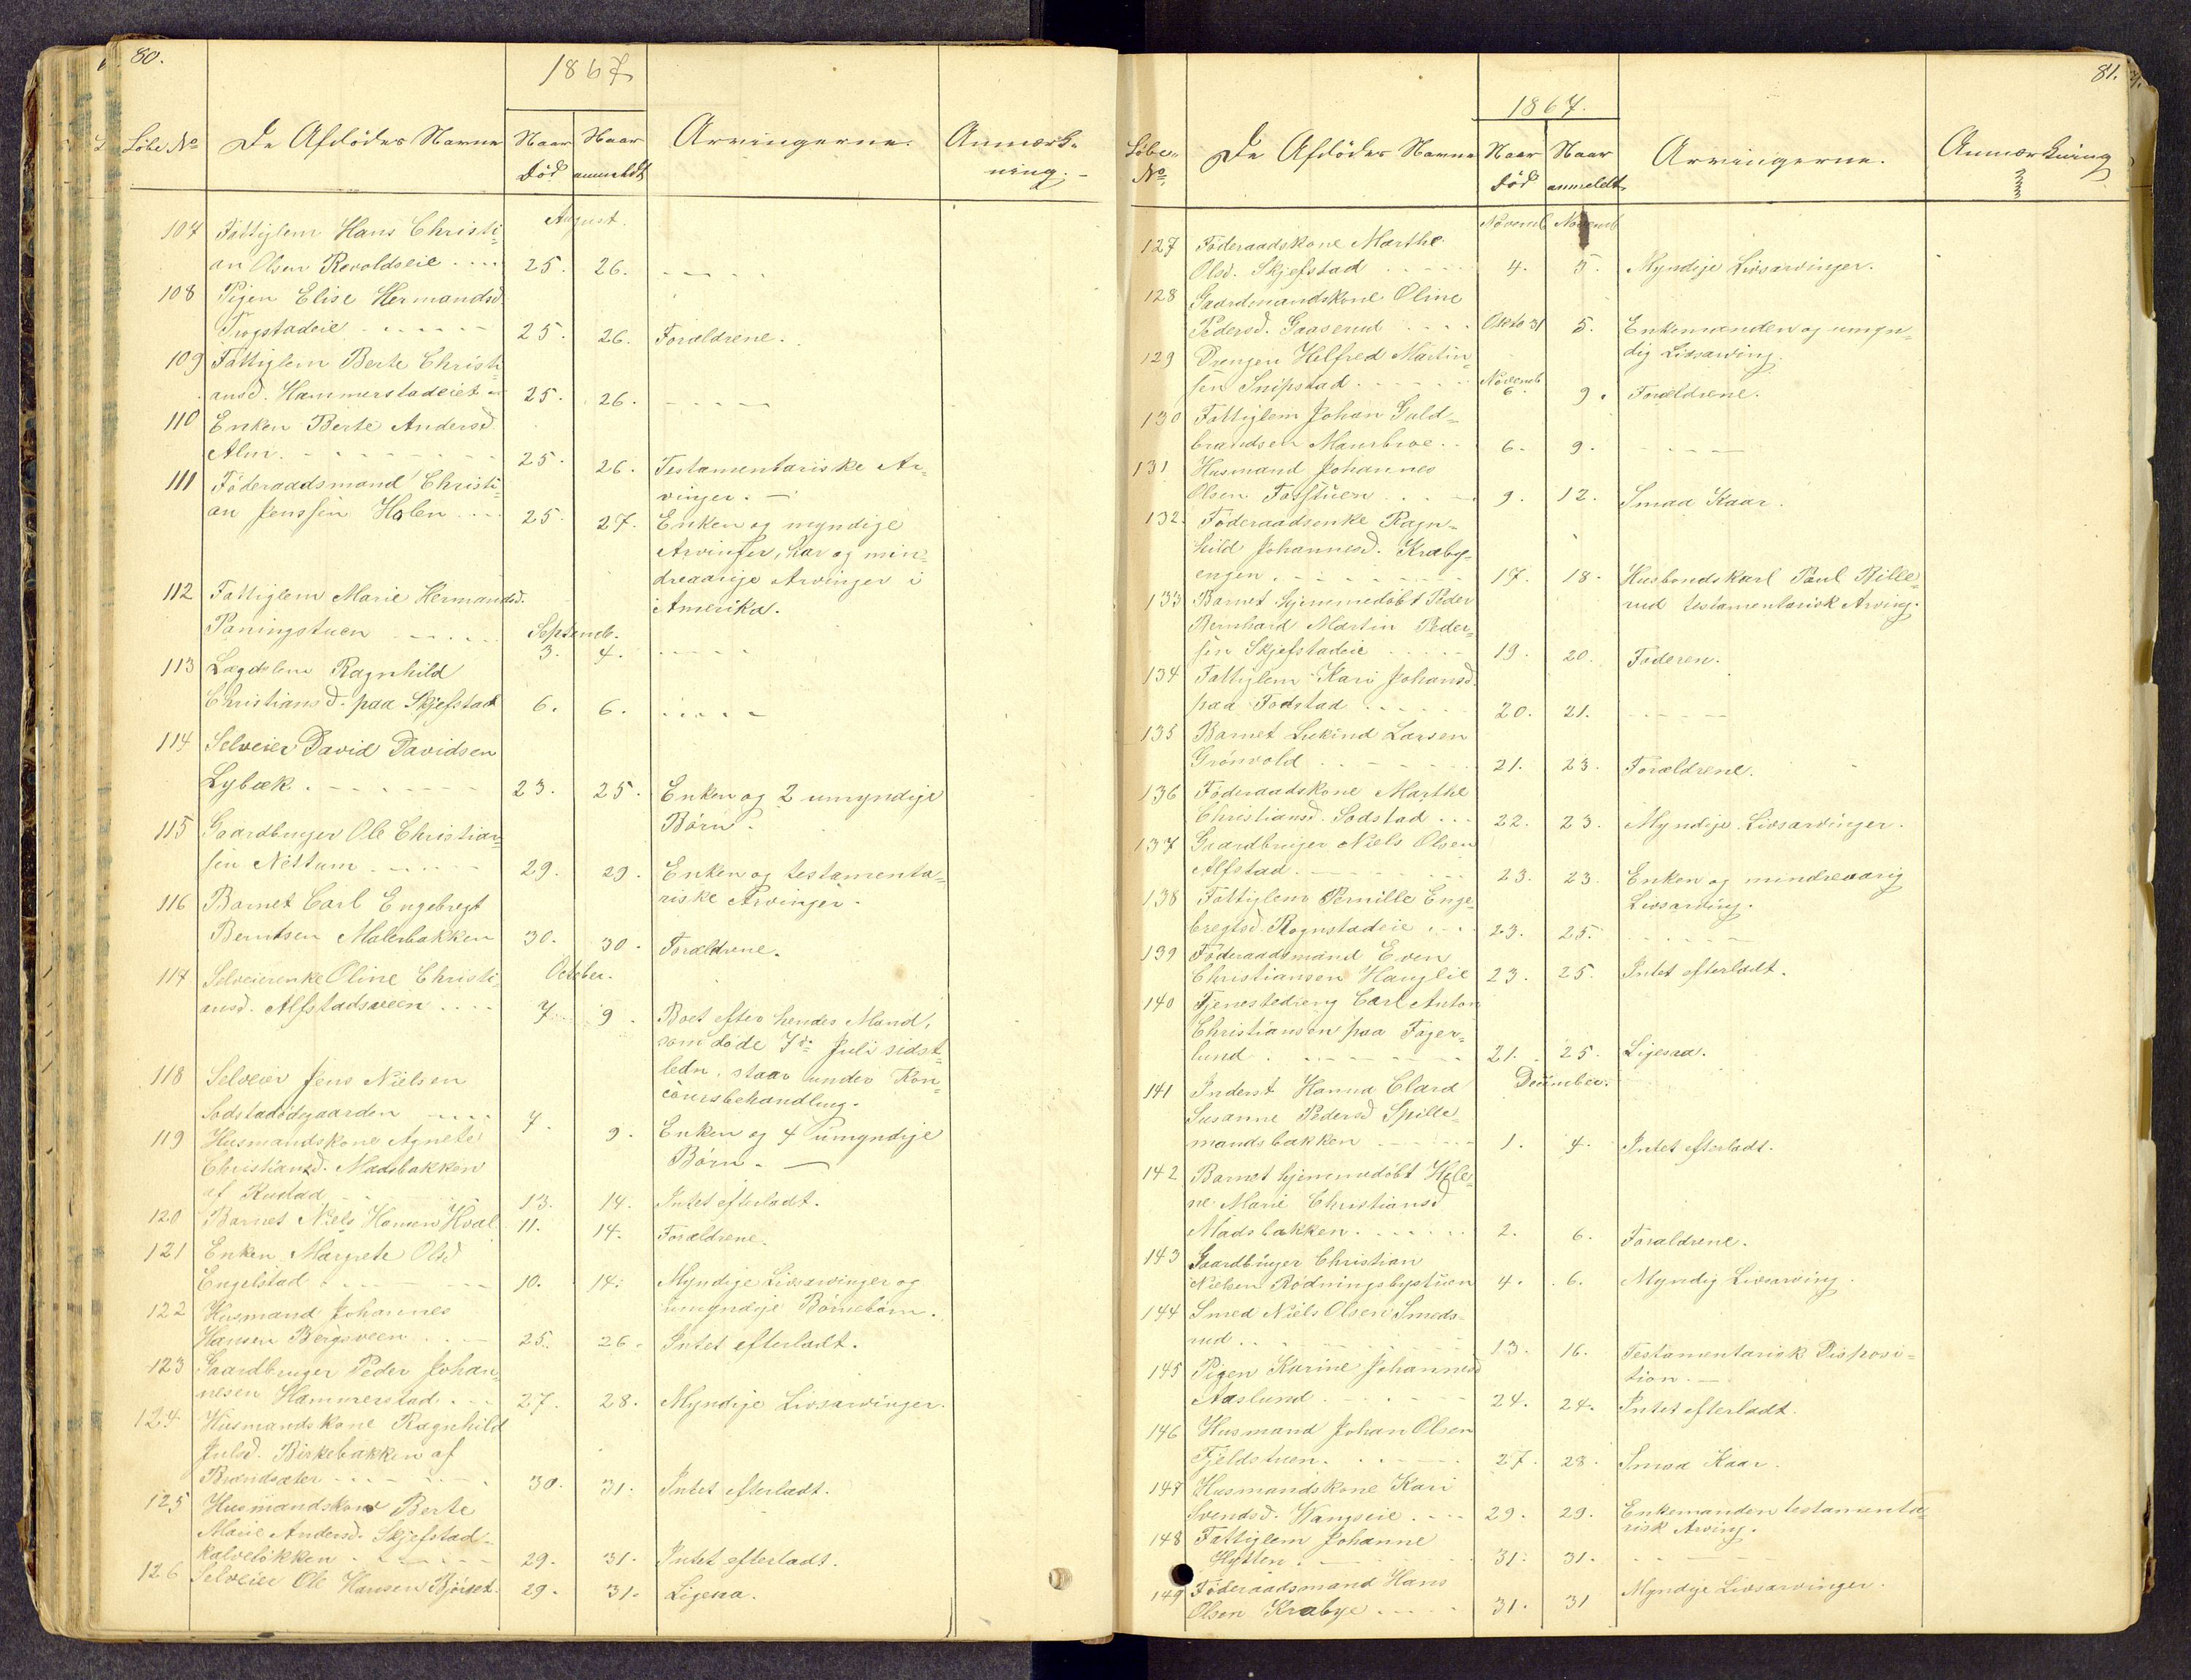 80.
1867
Löbe No De Afdödes Navne Naar Død Naar anmeldt Arvingerne. Anmærkning.
August.
107 Fattiglem Hans Christi-
an Olsen Revoldseie .... 25. 26. -----
108 Pigen Elise Hermandsd.
Trogstadeie ------ 25. 26. Forældrene.
109 Fattiglem Berte Christi-
ansd. Hammerstadeiet - 25. 26. -----
110 Enken Berte Andersd.
Alm. ------ 25. 26. Testamentariske Ar-
111 Föderaadsmand Christi- vinger. -
an Jenssen Holen ... 25. 27. Enken og myndige
Arvinger, har og min-
dreaarige Arvinger i
112 Fattiglem Marie Hermandsd. Amerika.
Septemb.
Paningstuen ----- 3. 4. -----
113 Lægdslem Ragnhild
Christiansd. paa Skjefstad 6. 6. -----
114 Selveier David Davidsen
Lybæk. ------ 23. 25. Enken og 2 umyndige
Börn.
115 Gaardbruger Ole Christian-
sen Nettum ----- 29. 29. Enken og testamenta-
116 Barnet Carl Engebregt riske Arvinger.
Berntsen Malerbakken 30. 30. Forældrene.
October.
117 Selveierenke Oline Christi-
ansd. Alfstadsveen .... 7 9. Boet efter hendes Mand,
som døde 7de Juli sidst-
118 Selveier Jens Nielsen ledn. staar under Kon-
coursbehandling.
Sodstadödegaarden ---- 7. 9. Enken og 4 umyndige
119 Husmandskone Agnete Börn. -
Christiansd. Madsbakken
af Rustad 13. 14. Intet efterladt.
120 Barnet Niels Hansen Hval 11. 14. Forældrene.
121 Enken Margrete Olsd
Engelstad ----- 10. 14. Myndige Livsarvinger og
122 Husmand Johannes umyndige Börnebörn.
Hansen Bergsveen ... 25. 26. Intet efterladt.
123 Gaardbruger Peder Johan-
nesen Hammerstad. .. 27. 28. Myndige Livsarvinger.
124 Husmandskone Ragnhild
Julsd. Birkebakken af
Brændsæter ----- 30. 31. Intet efterladt.
125 Husmandskone Berte
Marie Andersd. Skjefstad-
kalvelökken ----- 29. 31. Intet efterladt.
126 Selveier Ole Hansen Björset. 29. 31. Ligesaa.
81.
1867.
Löbe- No. De Afdödes Navne Naar Død Naar anmeldt Arvingerne. Anmærkning
Novemb Novemb
127 Föderaadskone Marthe
Olsd. Skjefstad ..... 4. 5. Myndige Livsarvinger.
128 Gaardmandskone Oline
Pedersd. Gaaserud .... Okto 31 5. Enkemanden og umyn-
129 Drengen Helfred Martin- dig Livsarving.
sen Snipstad ----- Novemb 6. 9. Forældrene.
130 Fattiglem Johan Guld-
brandsen Maurbroe .. 6. 9. -----
131 Husmand Johannes
Olsen Fosstuen ... 9. 12. Smaa Kaar.
132. Föderaadsenke Ragn-
hild Johannesd. Kraby-
engen. ------ 17. 18. Husbondskarl Paul Bille-
133 Barnet hjemmedöbt Peder rud testamentarisk Arving.
Bernhard Martin Peder-
sen Skjefstadeie ----- 19. 20. Faderen.
134 Fattiglem Kari Johansd.
paa Fodstad ...... 20. 21. -----
135 Barnet Lukind Larsen
Grönvold ----- 21. 23. Forældrene.
136 Föderaadskone Marthe
Christiansd. Sodstad ... 22. 23. Myndige Livsarvinger.
137 Gaardbruger Niels Olsen
Alfstad. ----- 23. 23. Enken og mindreaarig
138 Fattiglem Pernille Enge- Livsarving.
bregtsd. Rognstadeie .... 23. 25. -----
139 Föderaadsmand Even
Christiansen Hauglie 23. 25. Intet efterladt.
140 Tjenestedreng Carl Anton
Christiansen paa Fager-
lund ------ 21. 25. Ligesaa.
December.
141 Inderst Hanna Clara
Susanne Pedersd Spille-
mandsbakken ----- 1. 4. Intet efterladt.
142 Barnet hjemmedöbt Hele-
ne Marie Christiansd
Madsbakken. ..... 2. 6. Forældrene.
143 Gaardbruger Christian
Nielsen Rödningsbystuen 4. 6. Myndig Livsarving.
144 Smed Niels Olsen Smeds-
rud .. 13. 16. Testamentarisk Disposi-
145 Pigen Karine Johannesd tion. -
Aaslund ----- 24. 24. Intet efterladt.
146 Husmand Johan Olsen
Fjeldstuen. ----- 27. 28. Smaa Kaar.
147 Husmandskone Kari
Svendsd. Wangseie .... 29. 29. Enkemanden testamenta-
148 Fattiglem Johanne risk Arving.
Hytten. ----- 31. 31. -----
149 Föderaadsmand Hans
Olsen Krabye ----- 31. 31 Myndige Livsarvinger.